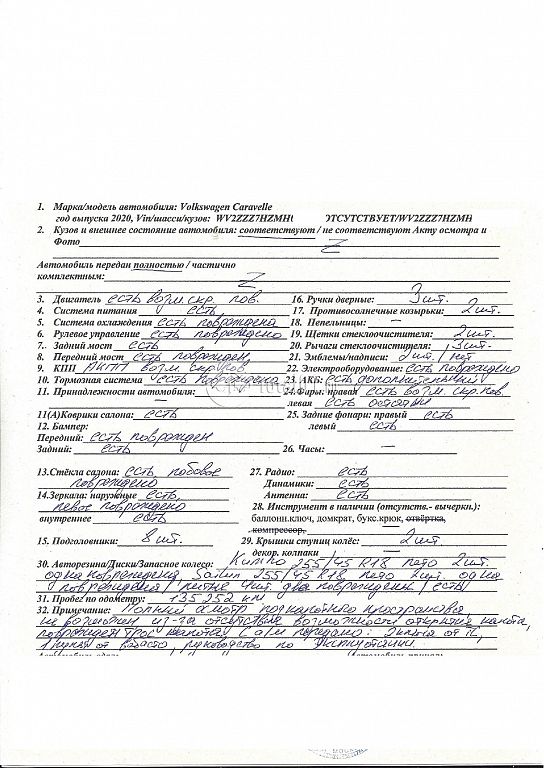 1. Марка/модель автомобиля: Volkswagen Caravelle
год выпуска 2020, Vin/шасси/кузов: WV2ZZZ7HZMH ОТСУТСТВУЕТ/WV2ZZZ7HZMH
2. Кузов и внешнее состояние автомобиля: соответствуют / не соответствуют Акту осмотра и
Фото Z
Автомобиль передан полностью / частично
комплектным: Z
3. Двигатель есть возм. скр. пов. 16. Ручки дверные: 3 шт.
4. Система питания есть 17. Противосолнечные козырьки: 2 шт.
5. Система охлаждения есть повреждена 18. Пепельницы: —
6. Рулевое управление есть повреждено 19. Щетки стеклоочистителя: 2 шт.
7. Задний мост есть 20. Рычаги стеклоочистителя: 3 шт.
8. Передний мост есть поврежден 21. Эмблемы/надписи: 2 шт./нет
9. КПП АКПП возм. скр. пов 22. Электрооборудование: есть повреждено
10. Тормозная система есть повреждено 23. АКБ: есть дополнительный
11. Принадлежности автомобиля: — 24. Фары: правая есть возм. скр. пов.
левая есть
11(А)Коврики салона: есть 25. Задние фонари: правый есть
12. Бампер: левый есть
Передний: есть поврежден
Задний: есть 26. Часы: —
13.Стёкла салона: есть лобовое 27. Радио: есть
повреждено Динамики: есть
14.Зеркала: наружные есть, Антенна: есть
левое повреждено 28. Инструмент в наличии (отсутств.- вычеркн.):
внутреннее есть баллонн.ключ, домкрат, букс.крюк, отвёртка,
компрессор.
15. Подголовники: 8 шт. 29. Крышки ступиц колёс: 2 шт.
декор. колпаки —
30. Авторезина/Диски/Запасное колесо: Кумхо 255/45 R18 лето 2 шт.
одна повреждена 255/45 R18 лето 2 шт. одна
повреждена / литые 4 шт. два повреждены / есть
31. Пробег по одометру: 135 252 км
32. Примечание: Полный осмотр подкапотного пространства
не возможен из-за отсутствия возможности открытия капота,
поврежден трос капота. С а/м передано:
1 пульт от руководство по эксплуатации.